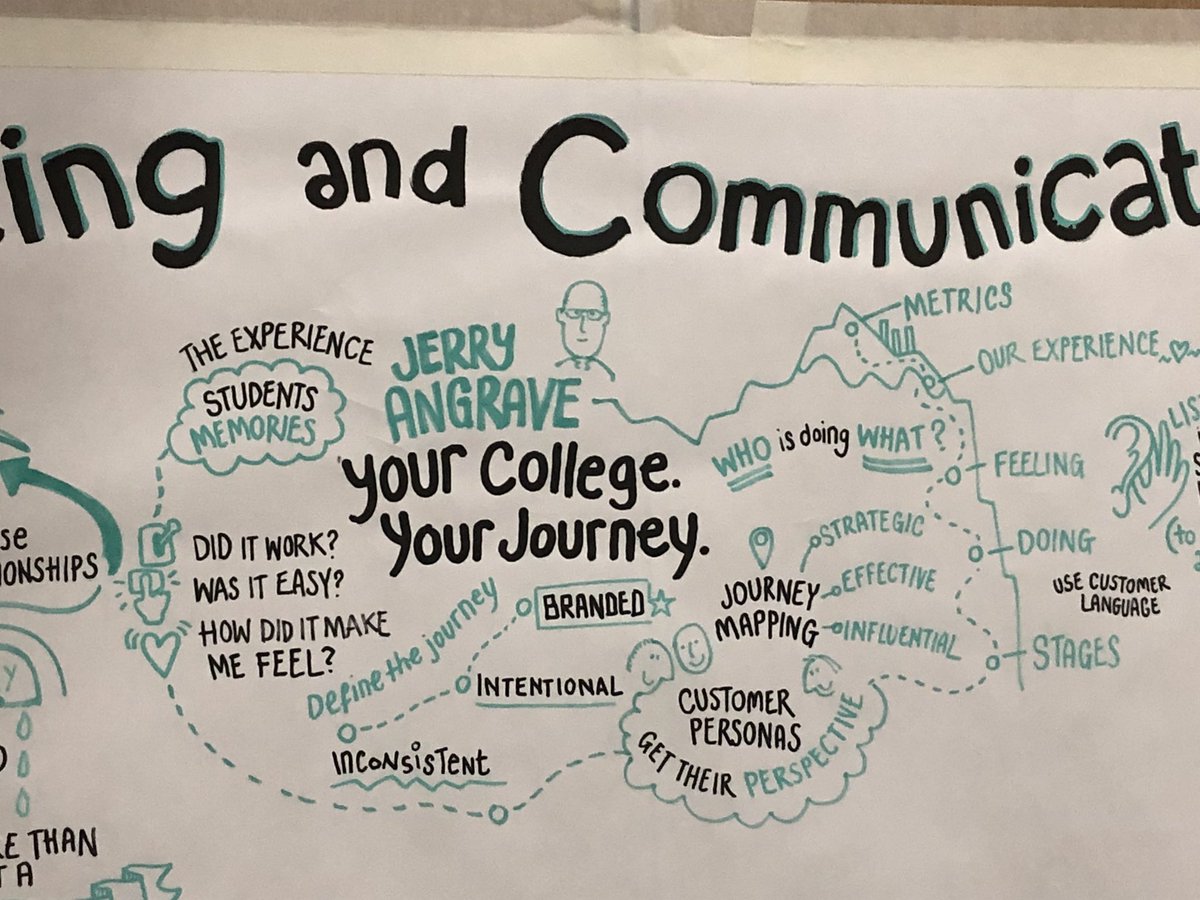 ing and Communicat
THE EXPERIENCE
STUDENTS
MEMORIES
JERRY
ANGRAVE
your College.
Your Journey.
DID IT WORK?
WAS IT EASY?
HOW DID IT MAKE
ME FEEL?
Define the journey
BRANDED
INTENTIONAL
INCONSISTENT
WHO is doing WHAT?
METRICS
OUR EXPERIENCE
FEELING
DOING
STAGES
JOURNEY
MAPPING
STRATEGIC
EFFECTIVE
INFLUENTIAL
CUSTOMER
PERSONAS
GET THEIR PERSPECTIVE
USE CUSTOMER
LANGUAGE
LIS
(to
se
IONSHIPS
Y
RE THAN
T A